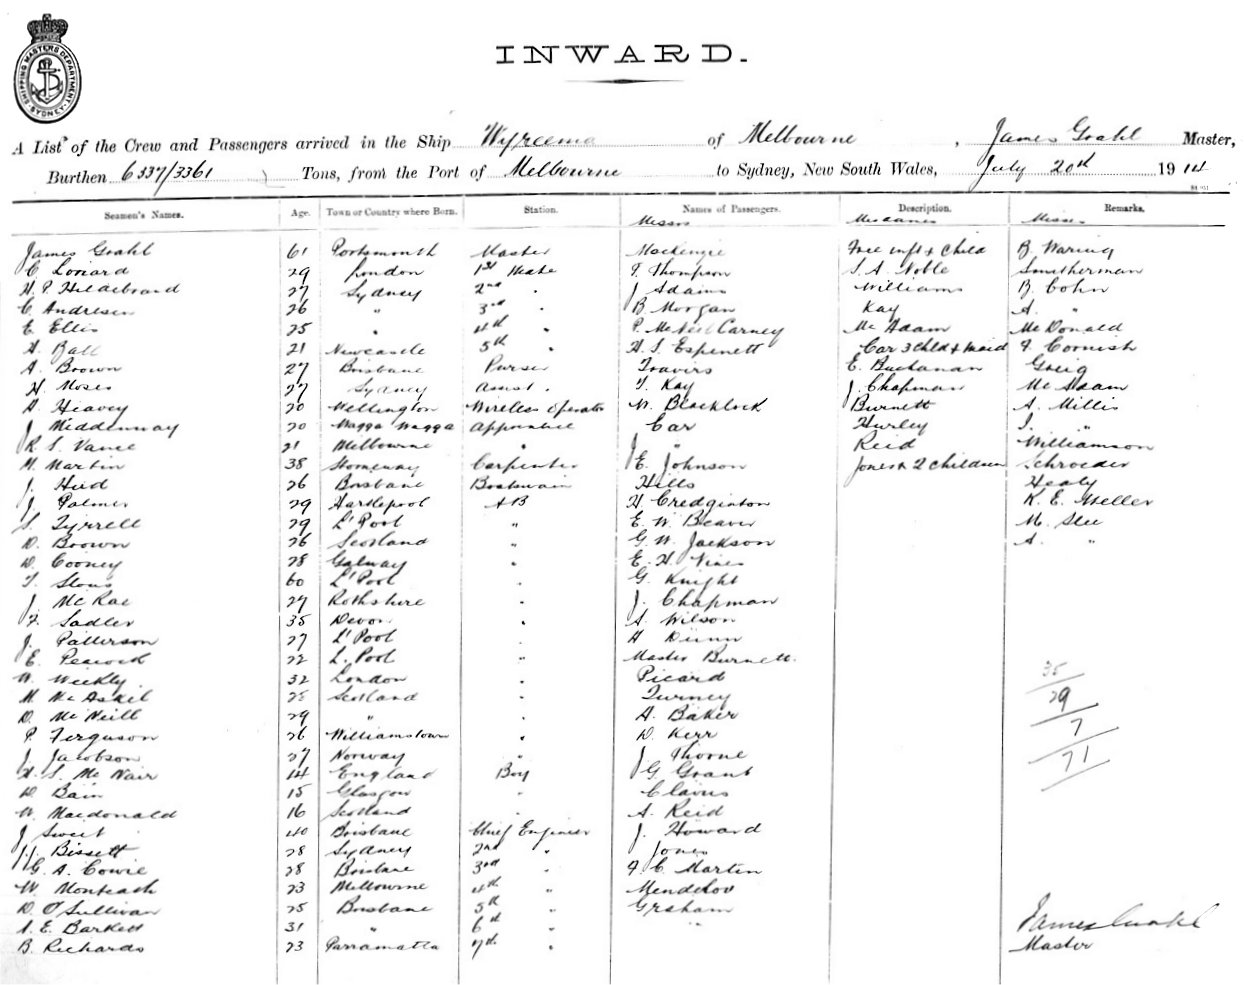 SHIPPING MASTERS DEPARTMENT
SYDNEY
INWARD.
A List of the Crew and Passengers arrived in the Ship Wyreema of Melbourne, James Grahl Master,
Burthen 6337/3361 Tons, from the Port of Melbourne to Sydney, New South Wales, July 20th 1914
Seamen's Names. Age. Town or Country where Born. Station. Names of Passengers. Description. Remarks.
Messrs Mesdames Misses
James Grahl 61 Portsmouth Master Mackenzie Free inft & Child B. Waring
C Lonard 29 London 1st Mate F. Thompson S. A. Noble Smitherman
H. P. Hildebrand 27 Sydney 2nd " J Adams Williams B. Cohn
C. Andresen 26 " 3rd " B Morgan Kay A. "
E Ellis 25 " 4th " P. McNeil Carney Mc Adam McDonald
A. Ball 21 Newcastle 5th " H. S. Espinett Car 3 Chld & maid F Cornish
A. Brown 27 Brisbane Purser Travirs E. Buchanan Greig
H. Moses 27 Sydney Assist. T. Kay J. Chapman Mc Adam
A Heavey 20 Wellington Wireless Operator W. Blacklock Burnett A. Millis
J Middenway 20 Wagga Wagga Apprentice Car Hurley I. "
R S. Vance 21 Melbourne " J " Reid Williamson
W. Martin 38 Stomeway Carpenter E. Johnson Jones & 2 children Schroeder
J. Hird 26 Brisbane Boatswain Hills Healy
J. Palmer 29 Hartlepool AB H Credginton K. E. Weller
S. Tyrrell 29 L'Pool " E. W. Beaver M. Slee
D. Brown 26 Scotland " G. W. Jackson A. "
D. Cooney 28 Galway " E. H. Vines
T. Slous 60 L'Pool " G. Knight
J. McRae 27 Rothshire " J. Chapman
F. Sadler 35 Devon " A. Wilson
J. Patterson 27 L'Pool " H Dunn
E. Peacock 22 L. Pool " Master Burnett.
W. Weekly 32 London " Picard 35
M McAskil 25 Scotland " Turney 29
D. McNeill 29 " " A. Baker 7
P. Ferguson 26 Williamstown " D. Kerr 71
J. Jacobson 27 Norway " J Thorne
H. S. McNair 14 England Boy G. Grant
D Bain 15 Glasgow " Clavis
W. Macdonald 16 Scotland " A. Reid
J Sweet 40 Brisbane Chief Engineer J. Howard
J. Bissett 28 Sydney 2nd " Jones
G. A. Cowie 28 Brisbane 3rd " F. C. Martin
W. Monteath 23 Melbourne 4th " Mendelov
D. O'Sullivan 25 Brisbane 5th " Graham
A. E. Barkell 31 " 6th " " James Grahl
B. Richards 23 Parramatta 7th " Master